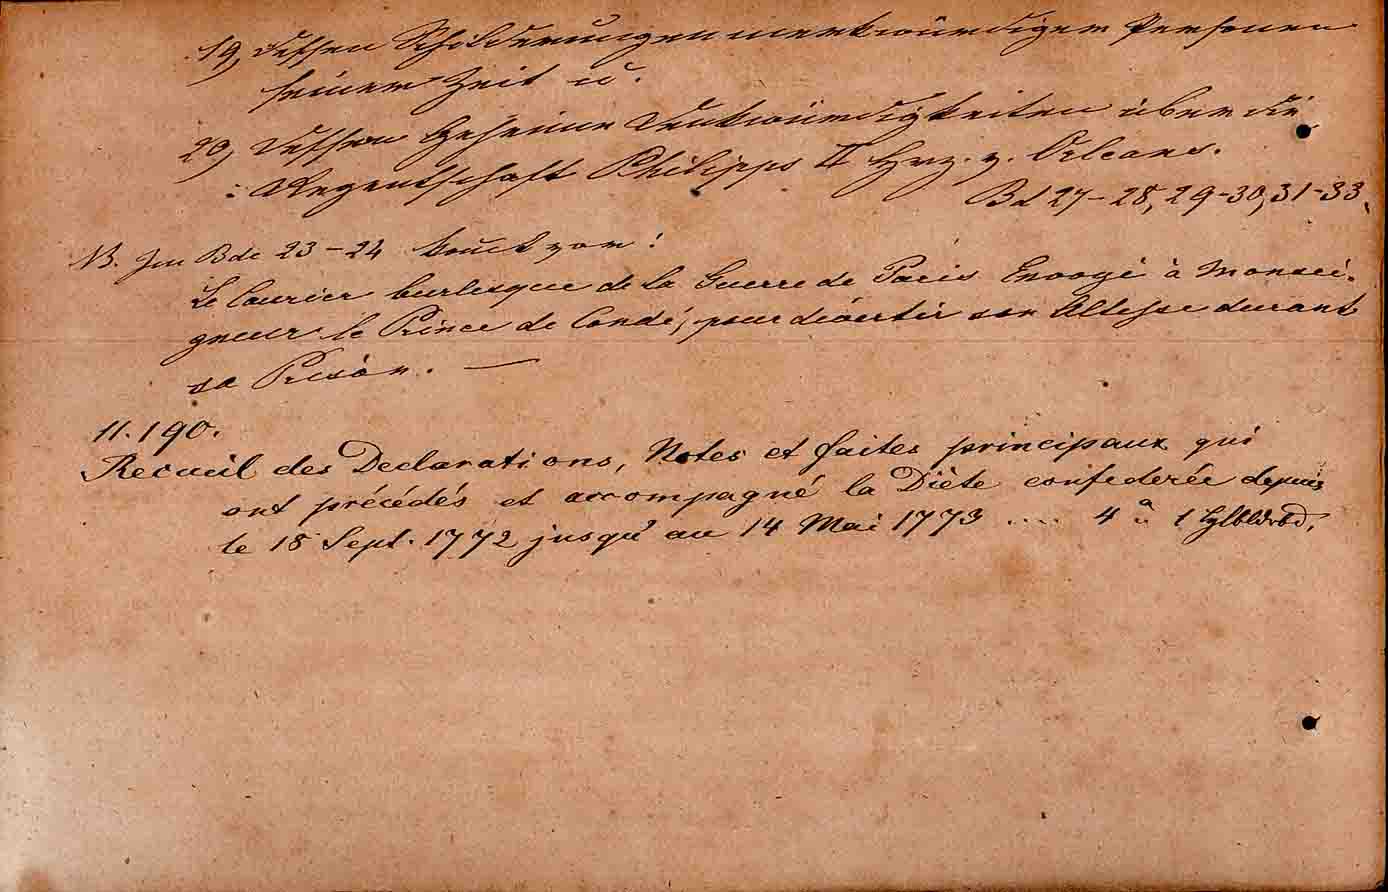 19, Dessen Schilderungen merkwürdiger Personen
seiner Zeit u.
20, Dessen Geheime Denkwürdigkeiten über die
Regentschaft Philipps II Hrz. v. Orleans.
Bd 27-28, 29-30, 31-33.
NB. Im Bde 23-24 kommt vor:
Le Courier burlesque de la Guerre de Paris Envoyé à Monsei-
gneur le Prince de Condé, pour divertir son Altesse durant
sa Prison. —
11.190.
Recueil des Declarations, Notes et faites principaux qui
ont précédés et accompagné la Diète confederée depuis
le 18 Sept. 1772 jusqu'au 14 Mai 1773 .... 4° 1